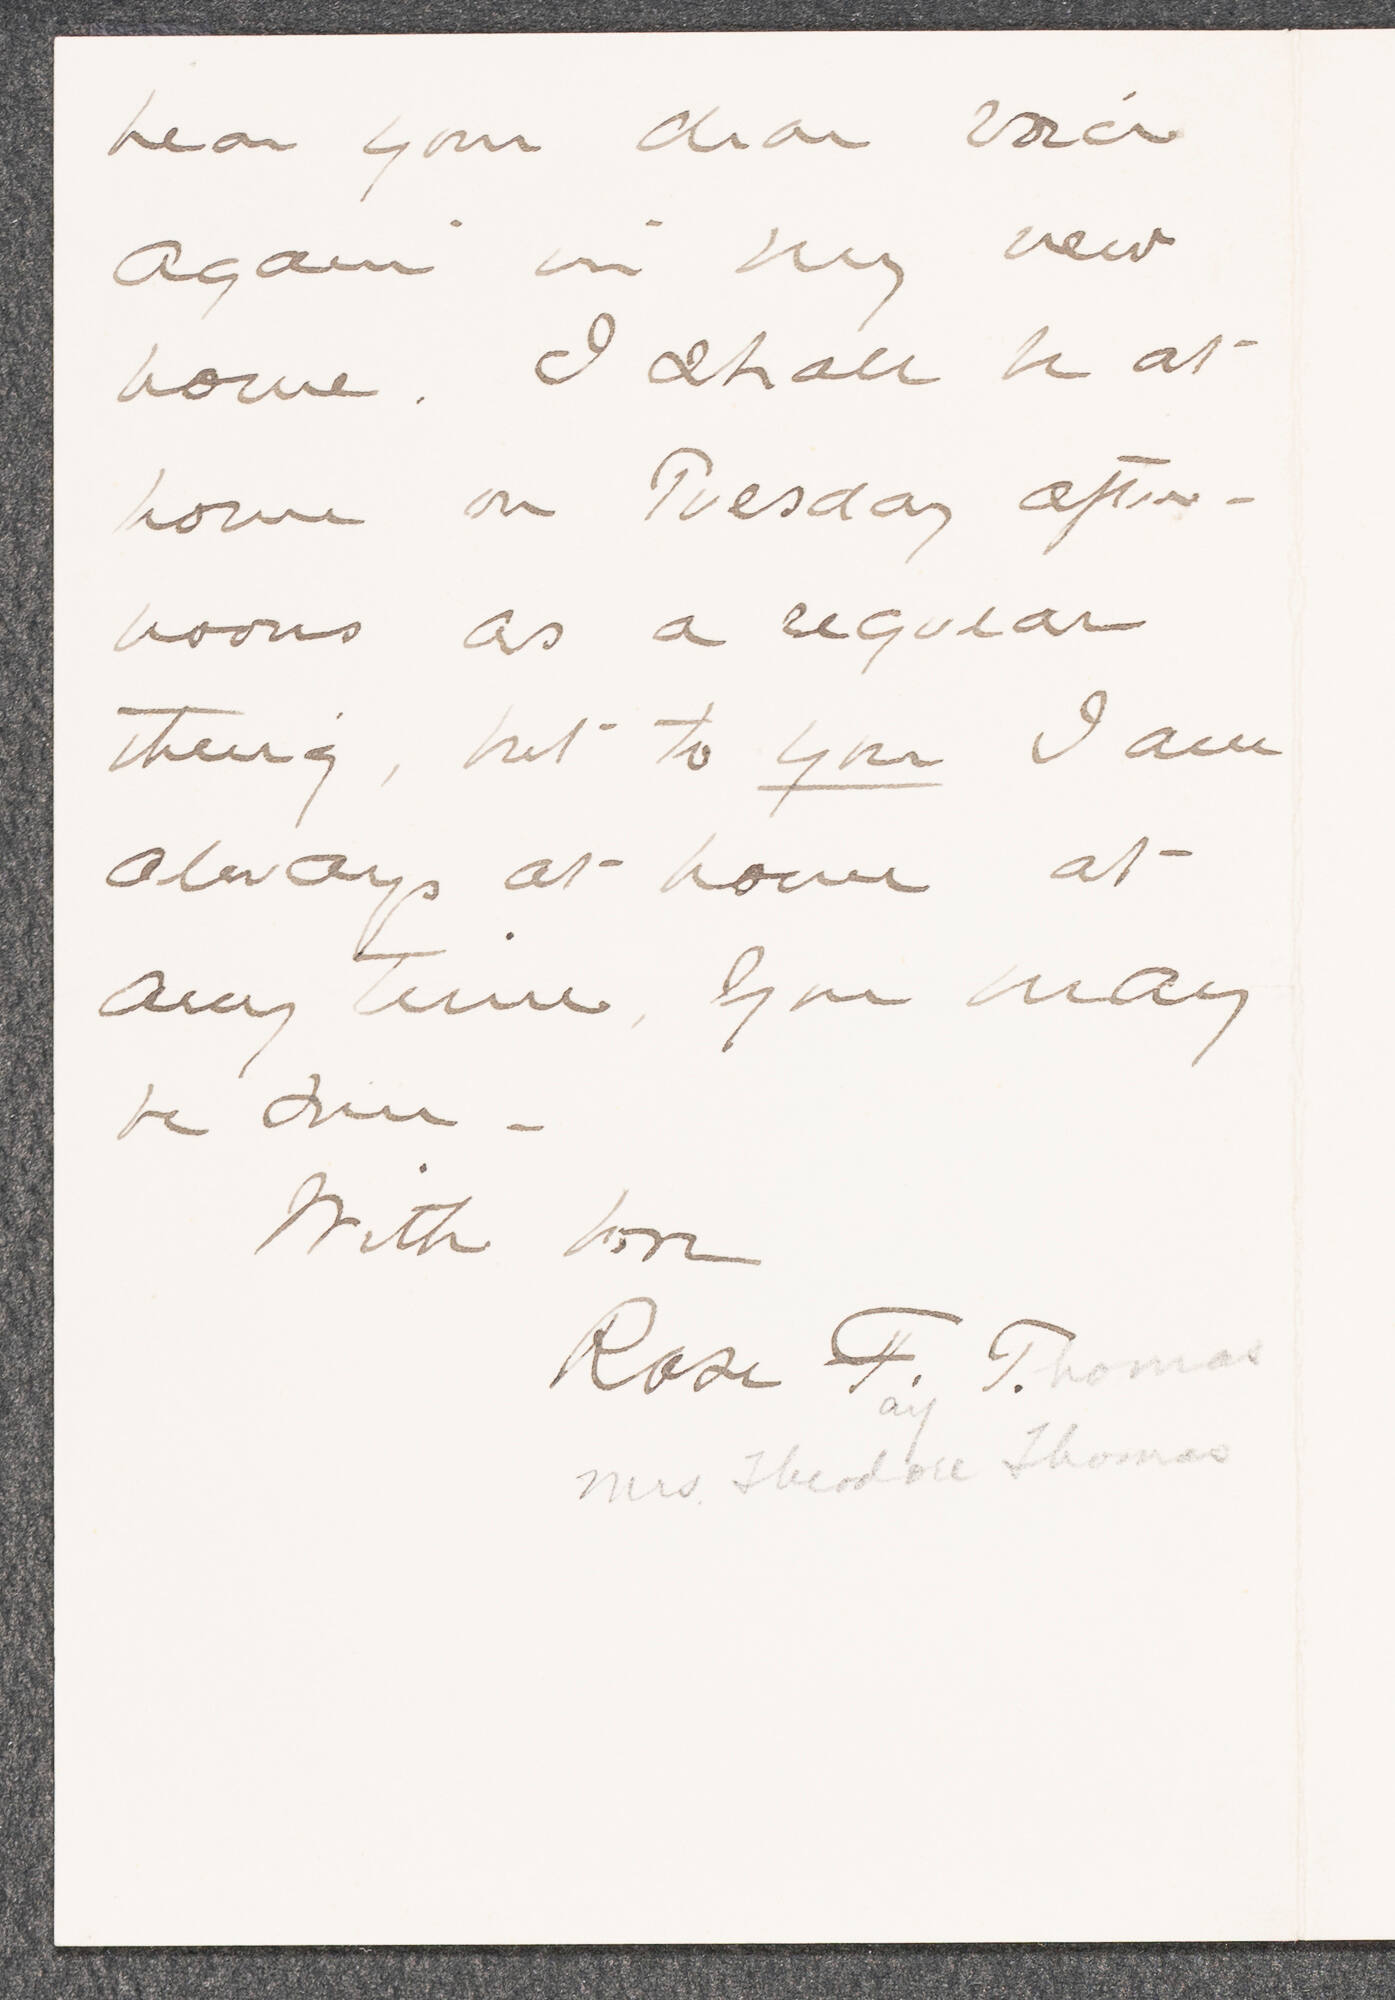 hear your dear voice
again in my new
home. I shall be at
home on Tuesday after-
noons as a regular
thing, but to you I am
always at home at
any time, you may
be sure -
With love
Rose F. Thomas
ay
Mrs. Theodore Thomas